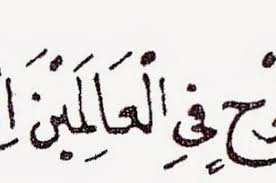 فِي الْعَالَمِينَ